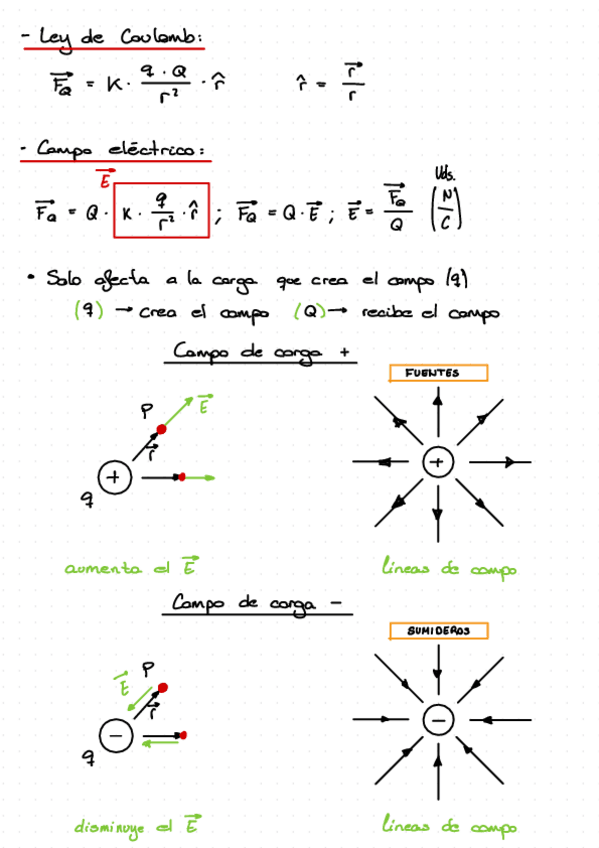 - Ley de Coulomb:
F⃗_Q = K · q · Q / r² · r̂    r̂ = r⃗ / r
- Campo eléctrico:
E⃗
Uds.
F⃗_Q = Q · K · q / r² · r̂ ; F⃗_Q = Q · E⃗ ; E⃗ = F⃗_Q / Q (N / C)
• Solo afecta a la carga que crea el campo (q)
(q) → crea el campo (Q) → recibe el campo
Campo de carga +
FUENTES
P
E⃗
r⃗
+
+
q
aumenta el E⃗
líneas de campo
Campo de carga −
SUMIDEROS
P
E⃗
r⃗
−
−
q
disminuye el E⃗
líneas de campo